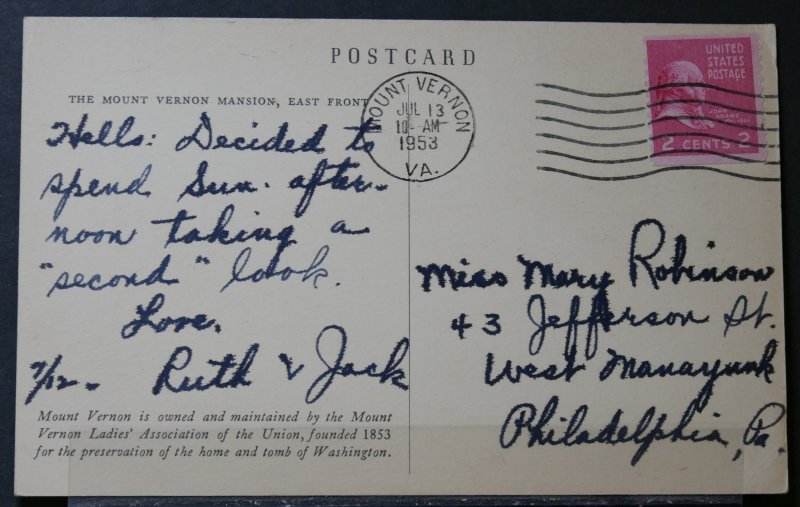 POSTCARD
THE MOUNT VERNON MANSION, EAST FRONT
Hello: Decided to
spend Sun. after-
noon taking a
"second" look.
Love,
7/12 - Ruth & Jack
Mount Vernon is owned and maintained by the Mount
Vernon Ladies' Association of the Union, founded 1853
for the preservation of the home and tomb of Washington.
MOUNT VERNON
JUL 13
10-AM
1953
VA.
UNITED
STATES
POSTAGE
JOHN
ADAMS
2 CENTS 2
Miss Mary Robinson
43 Jefferson St.
West Manayunk
Philadelphia, Pa.